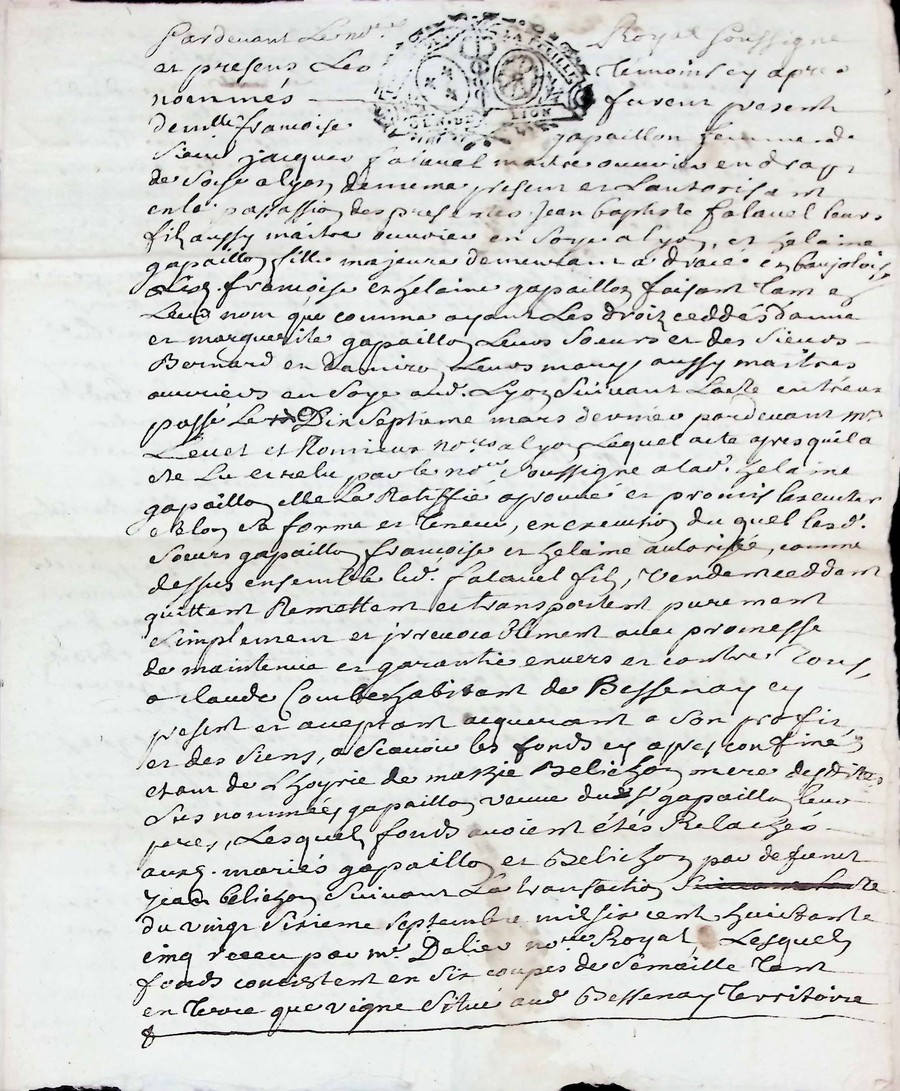 Pardevant Le no.re Royal Soussigne
et presens Les Temoins cy apres
nommés furent present
demlle francoise gapaillon femme de
Sieur jacques falavel maitre ouvrier en drapt
de Soye a lyon de meme present et Lautorisant
en la passassion des presentes jean baptiste falavel leurs
fils aussy maitre ouvrier en Soye a lyon, et helaine
gapaillon fille majeure demeurant a dracé en baujolois
Lesq. francoise et helaine gapaillon faisant tant en
Leurs nom que comme ayant Les droitz ceddés d'anne
et marguerite gapaillon Leurs Soeurs et des Sieurs
Bernard et Leurs marys aussy maitres
ouvriers en Soye aud. Lyon Suivant Lacte entreux
passé Le Dix Septieme mars dernier pardevant mrs
et no.res a lyon Lequel acte apres quil a
ete Lu et relu par le no.re Soussigne a lad. helaine
gapaillon elle La Ratiffié aprouvé et promis lexecuter
selon Sa forme et teneur, en execution du quel lesd.
Soeurs gapaillon francoise et helaine autorisée, comme
dessus ensemble led. falavel fils, vendent ceddent
quittent Remettent et transportent purement
Simplement et jrrevocablement avec promesse
de maintenir et garantir envers et contre Tous,
a claude Combe habitant de Bessenay cy
present et aceptant aquerant a Son profit
et des Siens, a Scavoir les fonds cy apres confinés
etant de L'hoyrie de marie Belichon mere desdittes
Sus nommées gapaillon veuve du Sr gapaillon leur
pere, Lesquels fonds avoient étés Relachés
auxq. mariés gapaillon et Belichon par defunt
jean belichon Suivant La transaction
du vingt Sixieme Septembre mil six cent huittante
cinq receu par me Dalier no.re Royal, Lesquels
fonds consistent en Six coupés de Semaille tant
en terre que vigne Situé aud. Bessenay Territoire